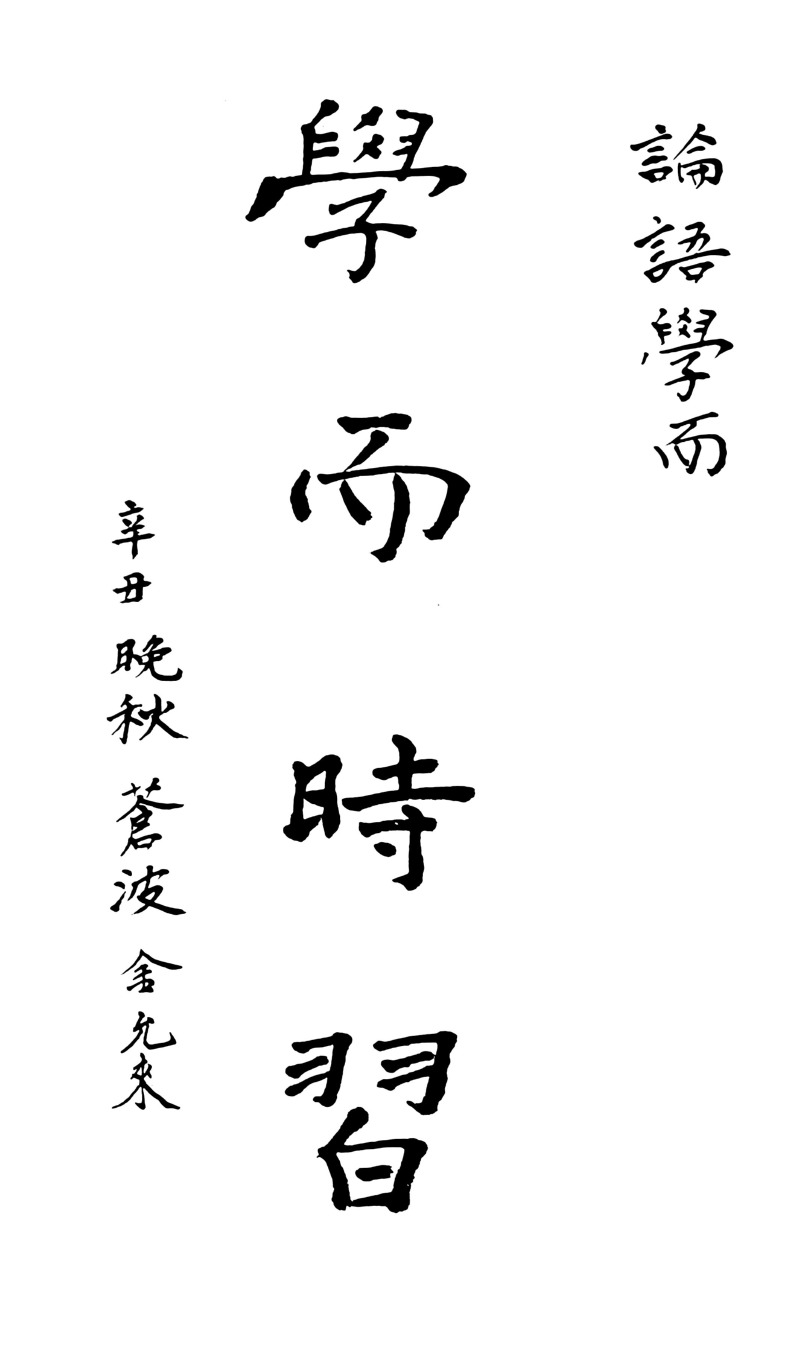 論語學而
學而時習
辛丑 晚秋 蒼波 舍允來